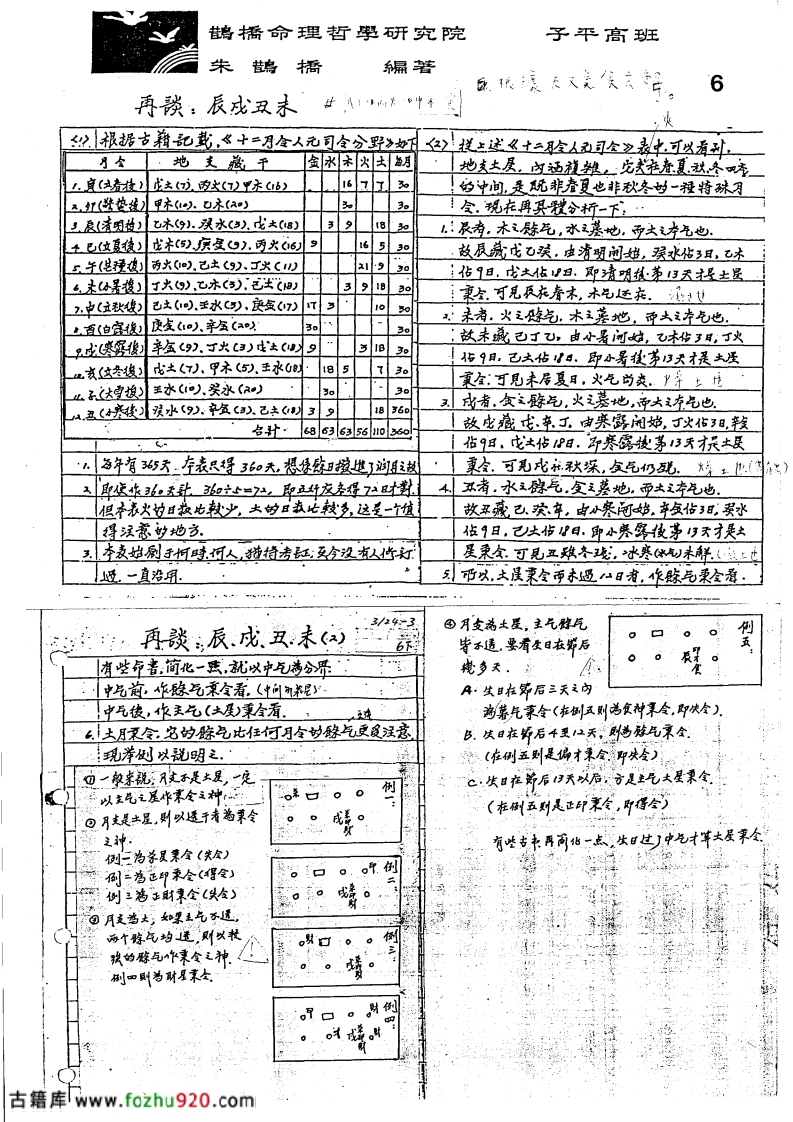 鵲橋命理哲學研究院 子平高班
朱鵲橋 編著
6
再談：辰戌丑未
<1> 根據古籍記載，《十二月令人元司令分野》如下
月令 地支藏干 金 水 木 火 土 每月
1. 寅(立春後) 戊土(7)，丙火(7) 甲木(16) 16 7 7 30
2. 卯(驚蟄後) 甲木(10)，乙木(20) 30 30
3. 辰(清明後) 乙木(9)，癸水(3)，戊土(18) 3 9 18 30
4. 巳(立夏後) 戊木(5)，庚金(9)，丙火(16) 9 16 5 30
5. 午(芒種後) 丙火(10)，己土(9)，丁火(11) 21 9 30
6. 未(小暑後) 丁火(9)，乙木(3)，己土(18) 3 9 18 30
7. 申(立秋後) 己土(10)，壬水(3)，庚金(17) 17 3 10 30
8. 酉(白露後) 庚金(10)，辛金(20) 30 30
9. 戌(寒露後) 辛金(9)，丁火(3) 戊土(18) 9 3 18 30
10. 亥(立冬後) 戊土(7)，甲木(5)，壬水(18) 18 5 7 30
11. 子(大雪後) 壬水(10)，癸水(20) 30 30
12. 丑(小寒後) 癸水(9)，辛金(3)，己土(18) 3 9 18 360
合計 68 63 63 56 110 360
1. 每年有365天，本表只得360天，想係餘日撥進了閏月之故
2. 即使作360天計，360÷5=72，即五行應各得72日才對，
但本表火的日數比較少，土的日數比較多，這是一個值
得注意的地方。
3. 本表始創于何時何人，猶待考証，至今沒有人修訂
過，一直沿用。
<2> 從上述《十二月令人元司令》表中，可以看到，
地支土星，內涵複雜，它夾在春夏秋冬四季
的中間，是既非春夏也非秋冬的一種特殊月
令，現在再具體分析一下：
1. 辰者，木之餘气，水之墓地，而土之本气也，
故辰藏戊乙癸，由清明開始，癸水佔3日，乙木
佔9日，戊土佔18日，即清明後第13天才是土星
秉令，可見辰在春木，木气还在。
2. 未者，火之餘气，木之墓地，而土之本气也，
故未藏己丁乙，由小暑開始，乙木佔3日，丁火
佔9日，己土佔18日，即小暑後第13天才是土星
秉令，可見未居夏日，火气尚炎。
3. 戌者，金之餘气，火之墓地，而土之本气也，
故戌藏戊、辛、丁，由寒露開始，丁火佔3日，辛金
佔9日，戊土佔18日，即寒露後第13天才是土星
秉令，可見戌在秋深，金气仍现。
4. 丑者，水之餘气，金之墓地，而土之本气也，
故丑藏己、癸、辛，由小寒開始，辛金佔3日，癸水
佔9日，己土佔18日，即小寒後第13天才是土
星秉令，可見丑雖冬残，冰寒(水气)未解。
5. 所以，土星秉令而未過12日者，作餘气秉令看。
3/24-3
6下
再談：辰、戌、丑、未(2)
有些命書，简化一點，就以中气為分界
中气前，作餘气秉令看，
中气後，作主气(土星)秉令看。
6. 土月秉令，它的餘气比任何月令的餘气更應注意，
现举例以說明之：
① 一般来說，月支不是土星，一定
以主气之星作秉令之神，
② 月支是土星，則以透干者為秉令
之神，
例一為杀星秉令(失令)
例二為正印秉令(得令)
例三為正財秉令(失令)
③ 月支為土，如果主气不透，
两个餘气均透，則以較
強的餘气作秉令之神，
例四則為財星秉令。
例一：
杀
例二：
印
例三：
財
例四：
甲 財
④ 月支為土星，主气餘气
皆不透，要看生日在節后
幾多天。
例五：
A. 生日在節后三天之內
為墓气秉令(在例五則為食神秉令，即失令)。
B. 生日在節后4至12天，則為餘气秉令。
(在例五則是偏才秉令，即失令)
C. 生日在節后13天以后，方是主气土星秉令
(在例五則是正印秉令，即得令)
有些古书再简化一点，生日过了中气才算土星秉令
古籍库 www.fozhu920.com